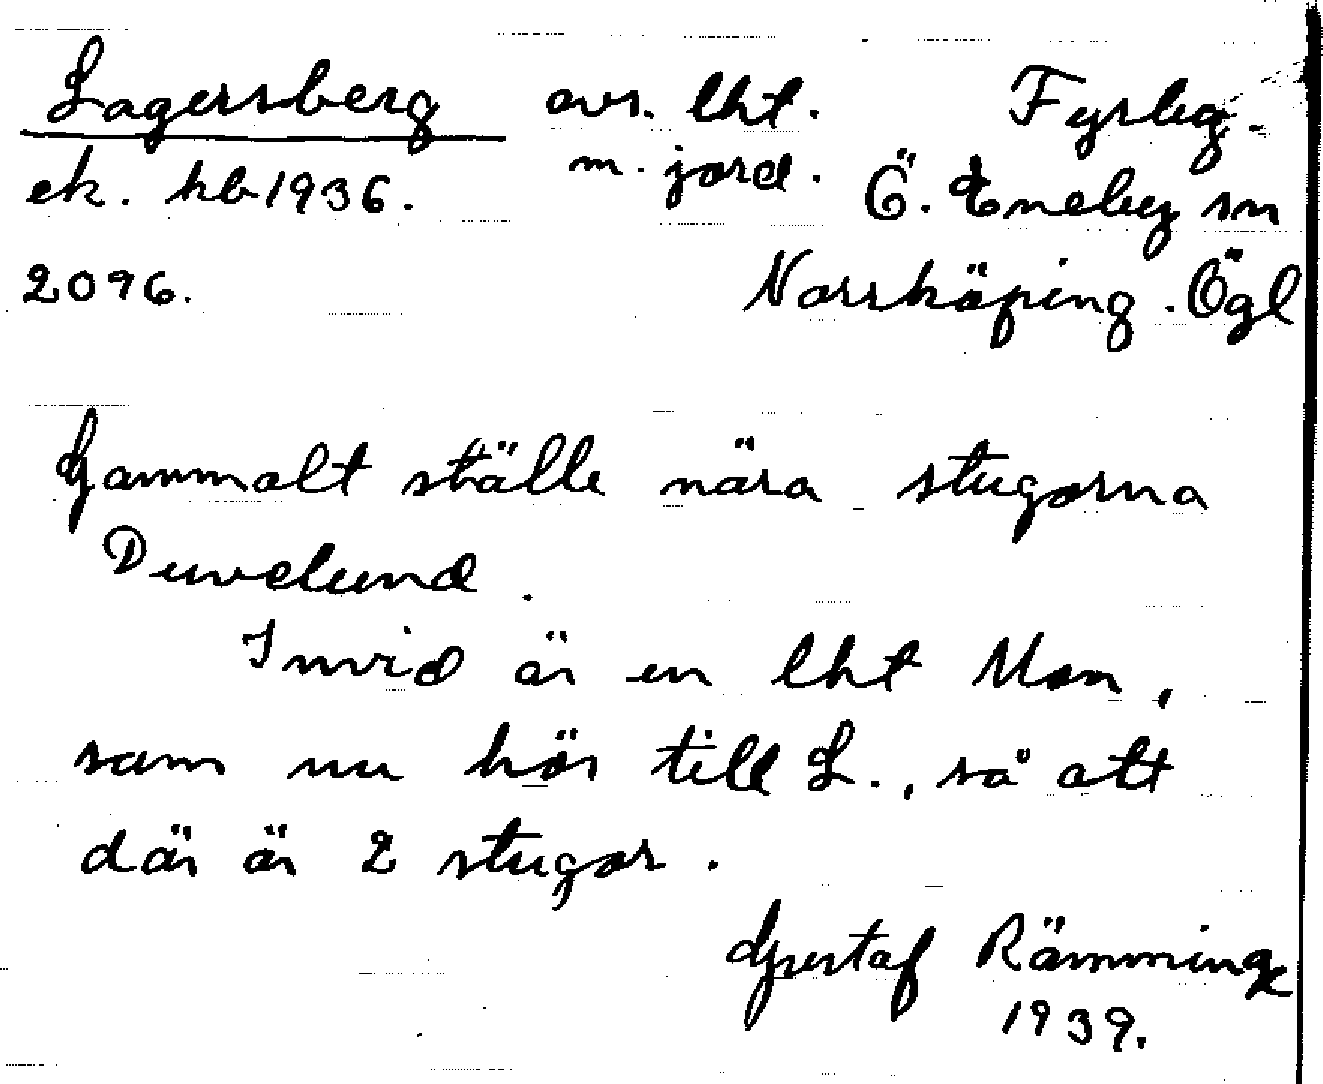 Lagersberg avs. lht. Fyrby-
ek. hb 1936. m. jord. Ö. Eneby sn
2096. Norrköping. Ögl
Gammalt ställe nära stugorna
Duvelund.
Invid är en lht Mon,
som nu hör till L., så att
där är 2 stugor.
Gustaf Rämming
1939.